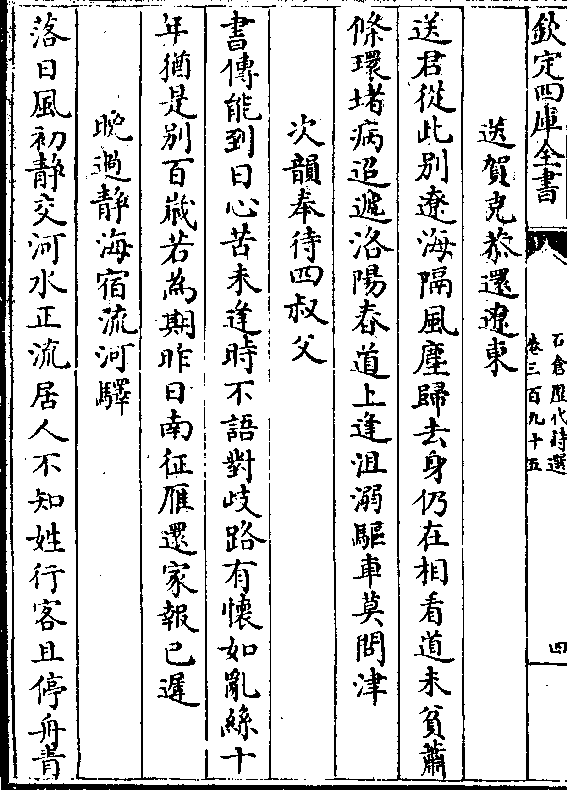 欽定四庫全書
石倉歷代詩選
卷三百九十五
四
送賀克恭還遼東
送君從此別遼海隔風塵歸去身仍在相看道未貧蕭
條環堵病迢遞洛陽春道上逢沮溺驅車莫問津
次韻奉待四叔父
書傳能到日心苦未逢時不語對歧路有懷如亂絲十
年猶是別百歲若為期昨日南征雁還家報已遲
晚過靜海宿流河驛
落日風初靜交河水正流居人不知姓行客且停舟青